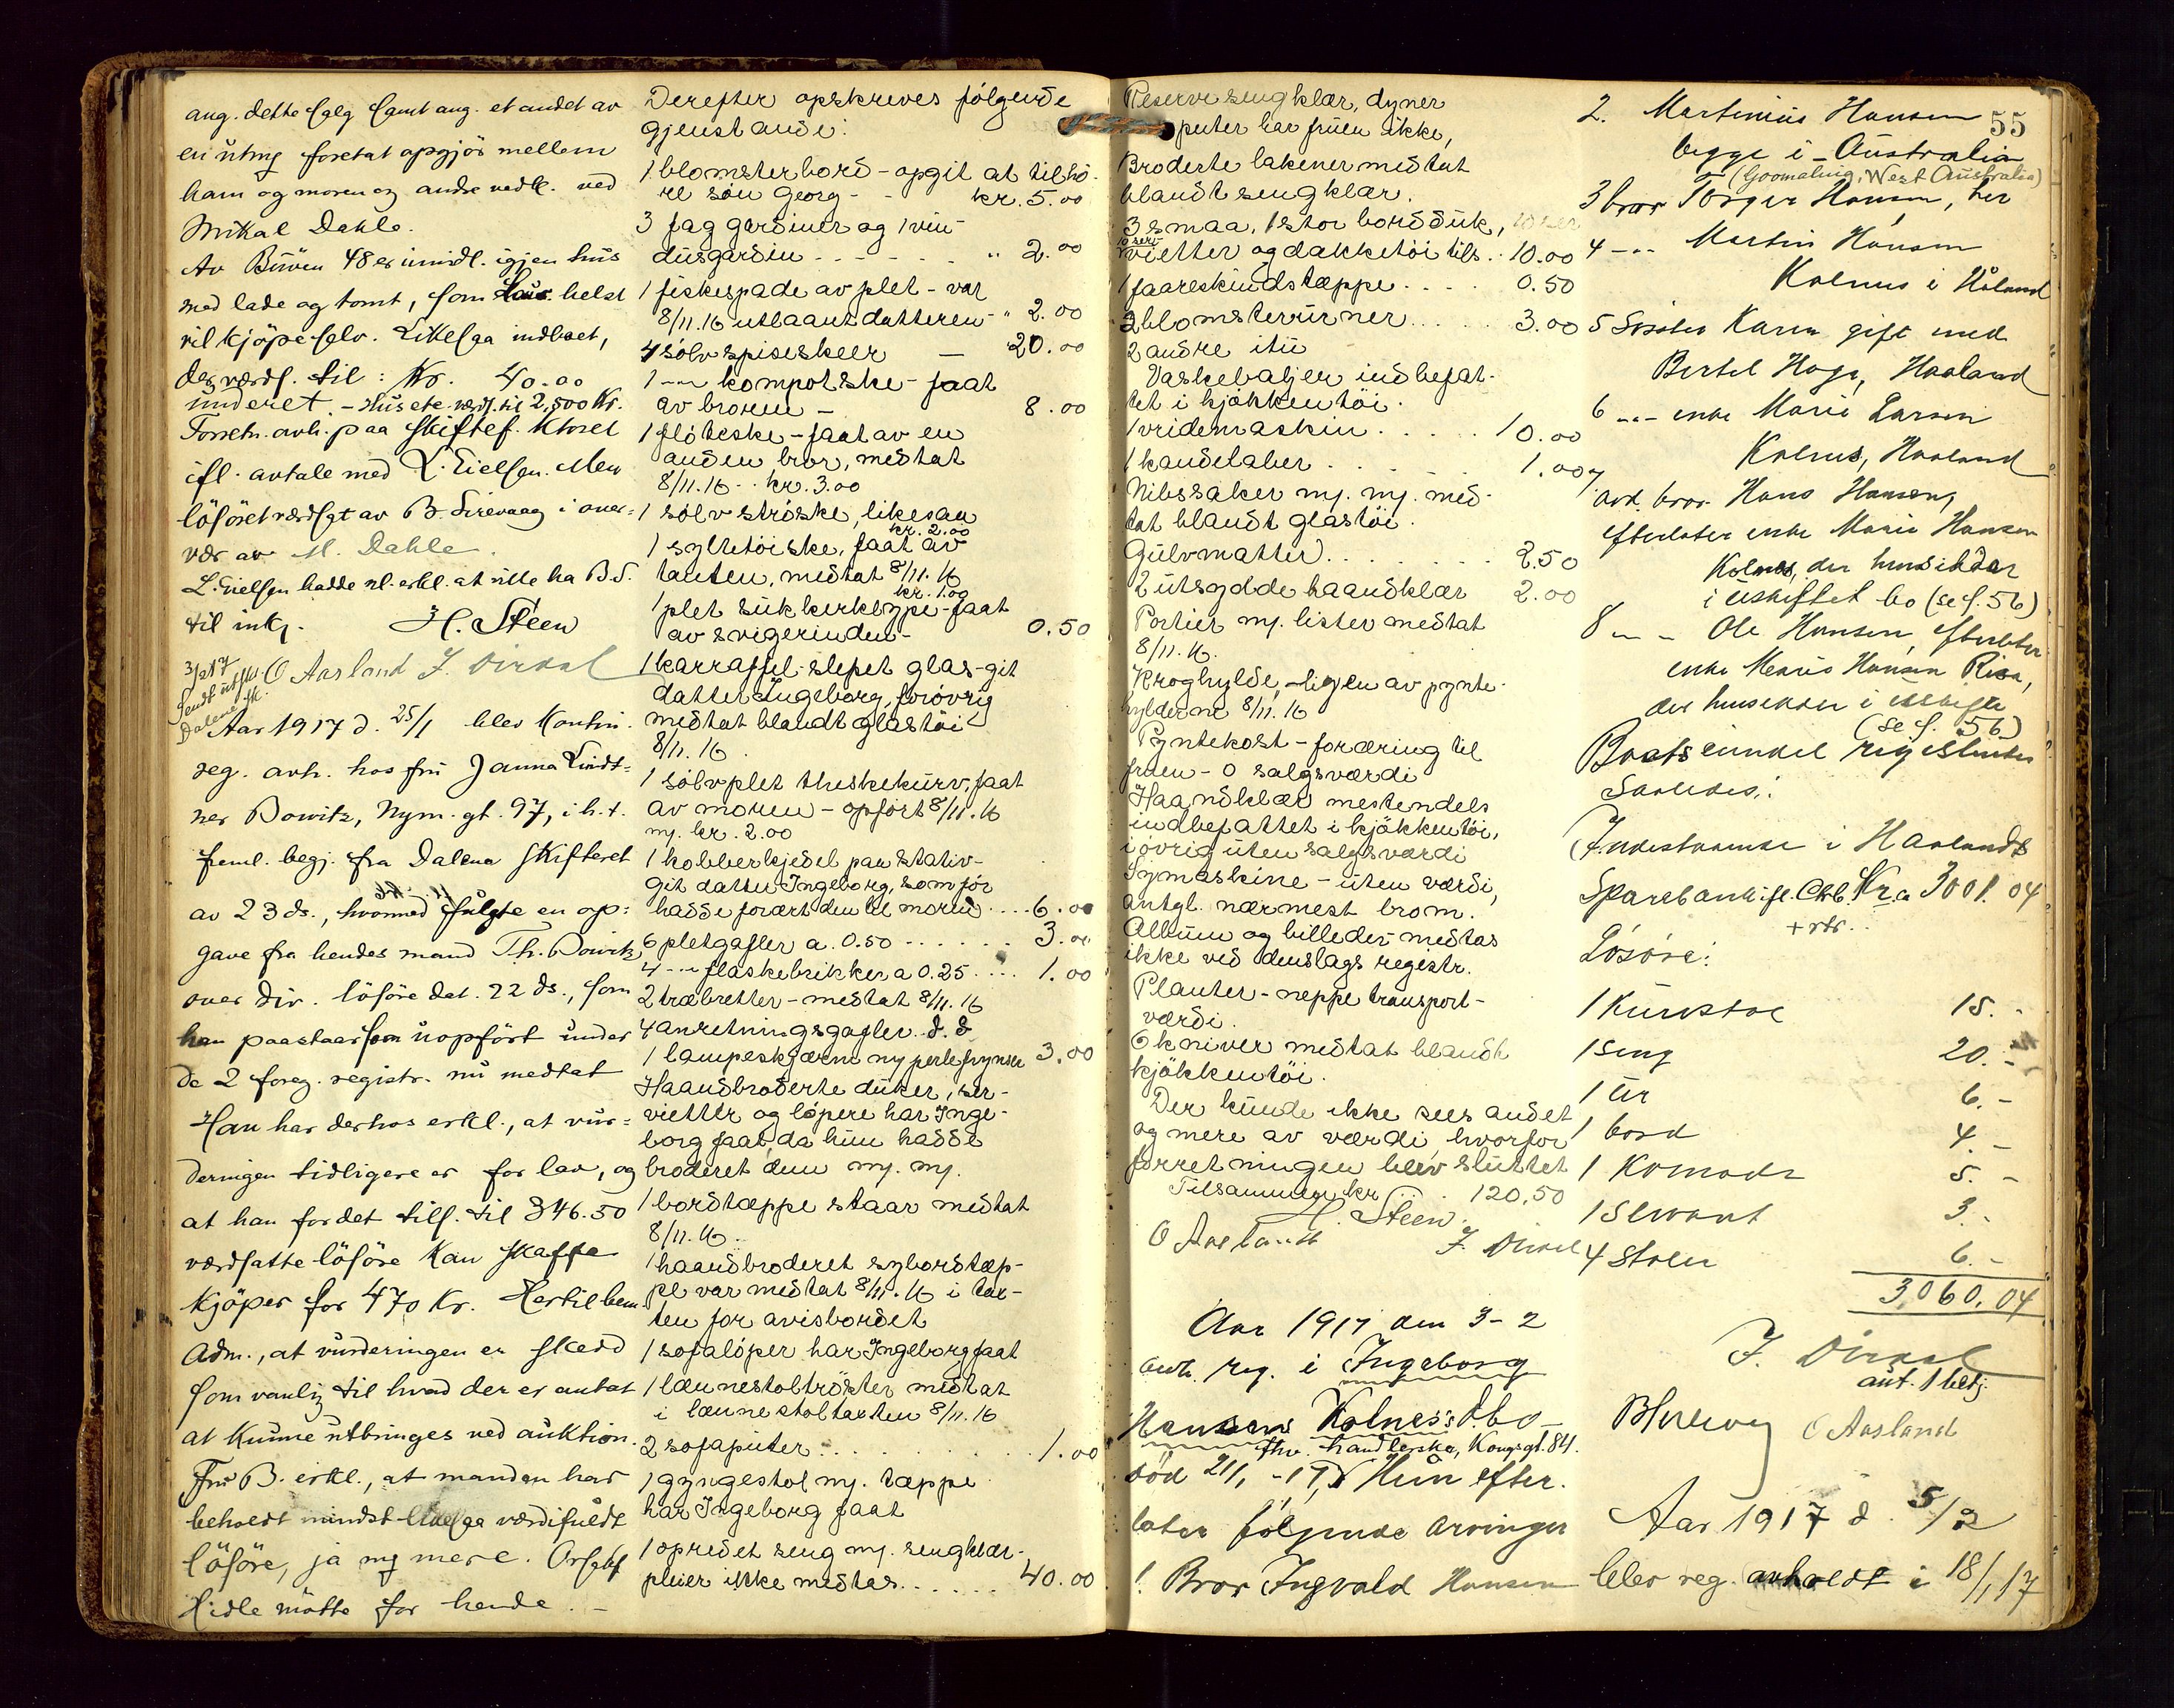 ang. dette salg samt ang. et andet av
en utmg foretat opgjör mellem
ham og moren og andre vedk. ved
Mikal Dahle.
Av Buöen 48 er imidl. igjen hus
med lade og tomt, som helst
vil kjöpe selv. Likesaa indboet,
der værds. til: Kr. 40.00
underet. - Hus etc. værds. til 2,500 Kr.
Forretn. avh. paa skiftef. Ktoret
ifl. avtale med L. Eielsen. Men
löföret værdsat av B. Sirevaag i over=
vær av M. Dahle.
L. Eielsen hadde nl. erkl. at ville ha B.S.
til intg. H. Steen
3/2 17 O Aasland J. Dirdal
Sendt utskr.
Dalene sk.
Aar 1917 d. 25/1 blev Kontin.
reg. avh. hos fru Janna Lindt=
ner Bowitz, Nym. gt. 97, i h. t.
freml. begj. fra Dalene skifteret
av 23 ds., hvormed fulgte en op=
gave fra hendes mand Th. Bowitz
over div. löföre dat. 22 ds., som
han paastaar som uopfört under
de 2 foreg. registr. nu medtat
Han har derhos erkl., at vur=
deringen tidligere er for lav, og
at han for det tils. til 346.50
værdsatte löföre kan skaffe
kjöper for 470 Kr. Hertil bem.
Adm., at vurderingen er skedd
som vanlig til hvad der er antat
at kunne utbringes ved auktion.
Fru B. erkl., at manden har
beholdt mindst likesaa værdifuldt
löföre, ja mg mere. Orsaks
Hidle mötte for hende. -
Derefter opskreves følgende
gjenstande:
1 blomsterbord - opgit at tilhö-
re søn Georg - - kr. 5.00
3 fag gardiner og 1 vin-
dusgardin - - - - - " 2.00
1 fiskespade av plet - var
8/11.16 utlaant datteren - " 2.00
4 sølv spiseskeer — " 20.00
1 -"- kompotske - faat
av broren - 8.00
1 fløteske - faat av en
anden bror, medtat
8/11.16 - kr. 3.00
1 sølv strøske, likesaa
kr. 2.00
1 syltetøiske, faat av
tanten, medtat 8/11.16
kr. 1.00
1 plet sukkerklype - faat
av svigerinden - 0.50
1 karraffel slepet glas - git
datter Ingeborg, forøvrig
medtat blandt glastøi
8/11.16.
1 sølvplet theskekurv, faat
av moren - opført 8/11.16
m. kr. 2.00
1 kobberkjedel paa stativ -
git datter Ingeborg, som før
hadde foræret den til moren .... 6.00
6 pletgafler a 0.50 ...... 3.00
4 -"- flaskebrikker a 0.25 .... 1.00
2 træbretter - medtat 8/11.16
4 anretningsgafler d.d
1 lampeskjærm m. perlefrynser 3.00
Haandbroderte duker, ser-
vietter og løpere har Inge-
borg faat da hun hadde
broderet dem m. m.
1 bordtæppe staar medtat
8/11.16.
1 haandbroderet sybordtæp-
pe var medtat 8/11.16 i tak-
ten for avisbordet
1 sofaløper har Ingeborg faat
1 lænestoltrøkter medtat
i lænestoltakten 8/11.16
2 sofaputer ......... 1.00
1 gyngestol m. tæppe
har Ingeborg faat
1 opredet seng m. sengklær -
pleier ikke medtas ...... 40.00
Reserve sengklær, dyner
puter har fruen ikke,
Broderte lakener medtat
blandt sengklær.
3 smaa, 1 stor bordduk,
10 ser-
vietter og dækketøi tils .. 10.00
1 faareskindstæppe .... 0.50
3 blomsterurner .... 3.00
2 andre itu
Vaskebaljer indbefat-
tet i kjøkkentøi.
1 vridemaskin ..... 10.00
1 kandelaber ...... 1.00
Nibssaker m. m. med-
tat blandt glastøi.
Gulvmatter ....... 2.50
2 utsydde haandklær 2.00
Portier m. lister medtat
8/11.16.
Kroghylde, - en av pynte-
hylderne 8/11.16
Pyntekost - foræring til
fruen - 0 salgsværdi
Haandklær mestendels
indbefattet i kjøkkentøi,
i øvrig uten salgsværdi
Symaskine - uten værdi,
antgl. nærmest brom.
Album og billeder medtas
ikke ved denslags registr.
Planter - neppe transport-
værdi.
6 kniver medtat blandt
kjøkkentøi.
Der kunde ikke sees andet
og mere av værdi hvorfor
forretningen blev sluttet
Tilsammen kr. 120.50
H. Steen.
O Aasland J. Dirdal
Aar 1917 den 3-2
avh. reg. i Ingeborg
Hansens Kolnes's dbo -
fhv. handlerske, Kongsgt. 84.
död 21/1 - 17. Hun efter.
later følgende arvinger
1. Bror Ingvald Hansen
55
2. Martinius Hansen
begge i Australia
(Goomaling, West Australia)
3 bror Torger Hansen, her
4 -"- Martin Hansen
Kolnes i Håland
5 Søster Karen gift med
Bertel Hage, Haaland
6 -"- enke Marie Larsen
Kolnes, Haaland
7 avd. bror Hans Hansen,
efterlater enke Marie Hansen
Kolnes, der hensidder
i uskiftet bo (se s. 56)
8 -"- Ole Hansen, efterlater
enke Hansen Risa,
der hensidder i uskifte
(se s. 56)
Boets midel registreres
Saaledes:
Indestaaende i Haalands
Sparebank ifl. Ctrb. Kr. a 3001.04
+ rtr. ..
Løsøre:
1 Kurvstol 15. -
1 seng 20. -
1 Ur 6. -
1 bord 4. -
1 Komode 5. -
1 Servant 3. -
4 Stoler 6. -
3,060.04
J. Dirdal
aut. 1 betj.
O Aasland
Aar 1917 d. 5/2
blev reg. avholdt i 18/1 17